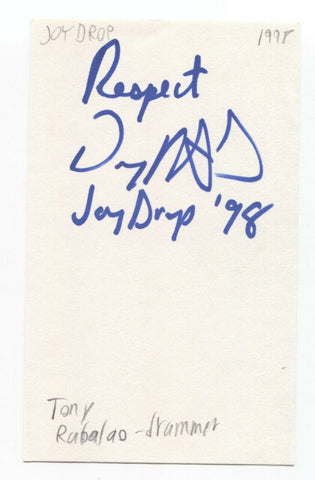 JOYDROP 1998
Respect
Joydrop '98
Tony
Rabalao - drummer